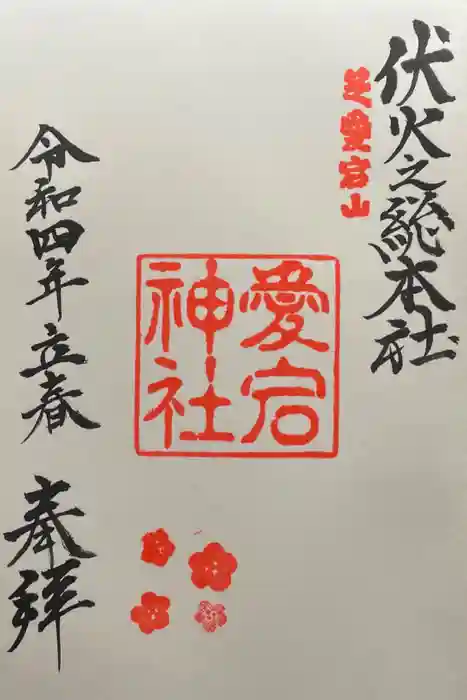 伏火之総本社
芝愛宕山
愛宕
神社
令和四年立春
奉拝